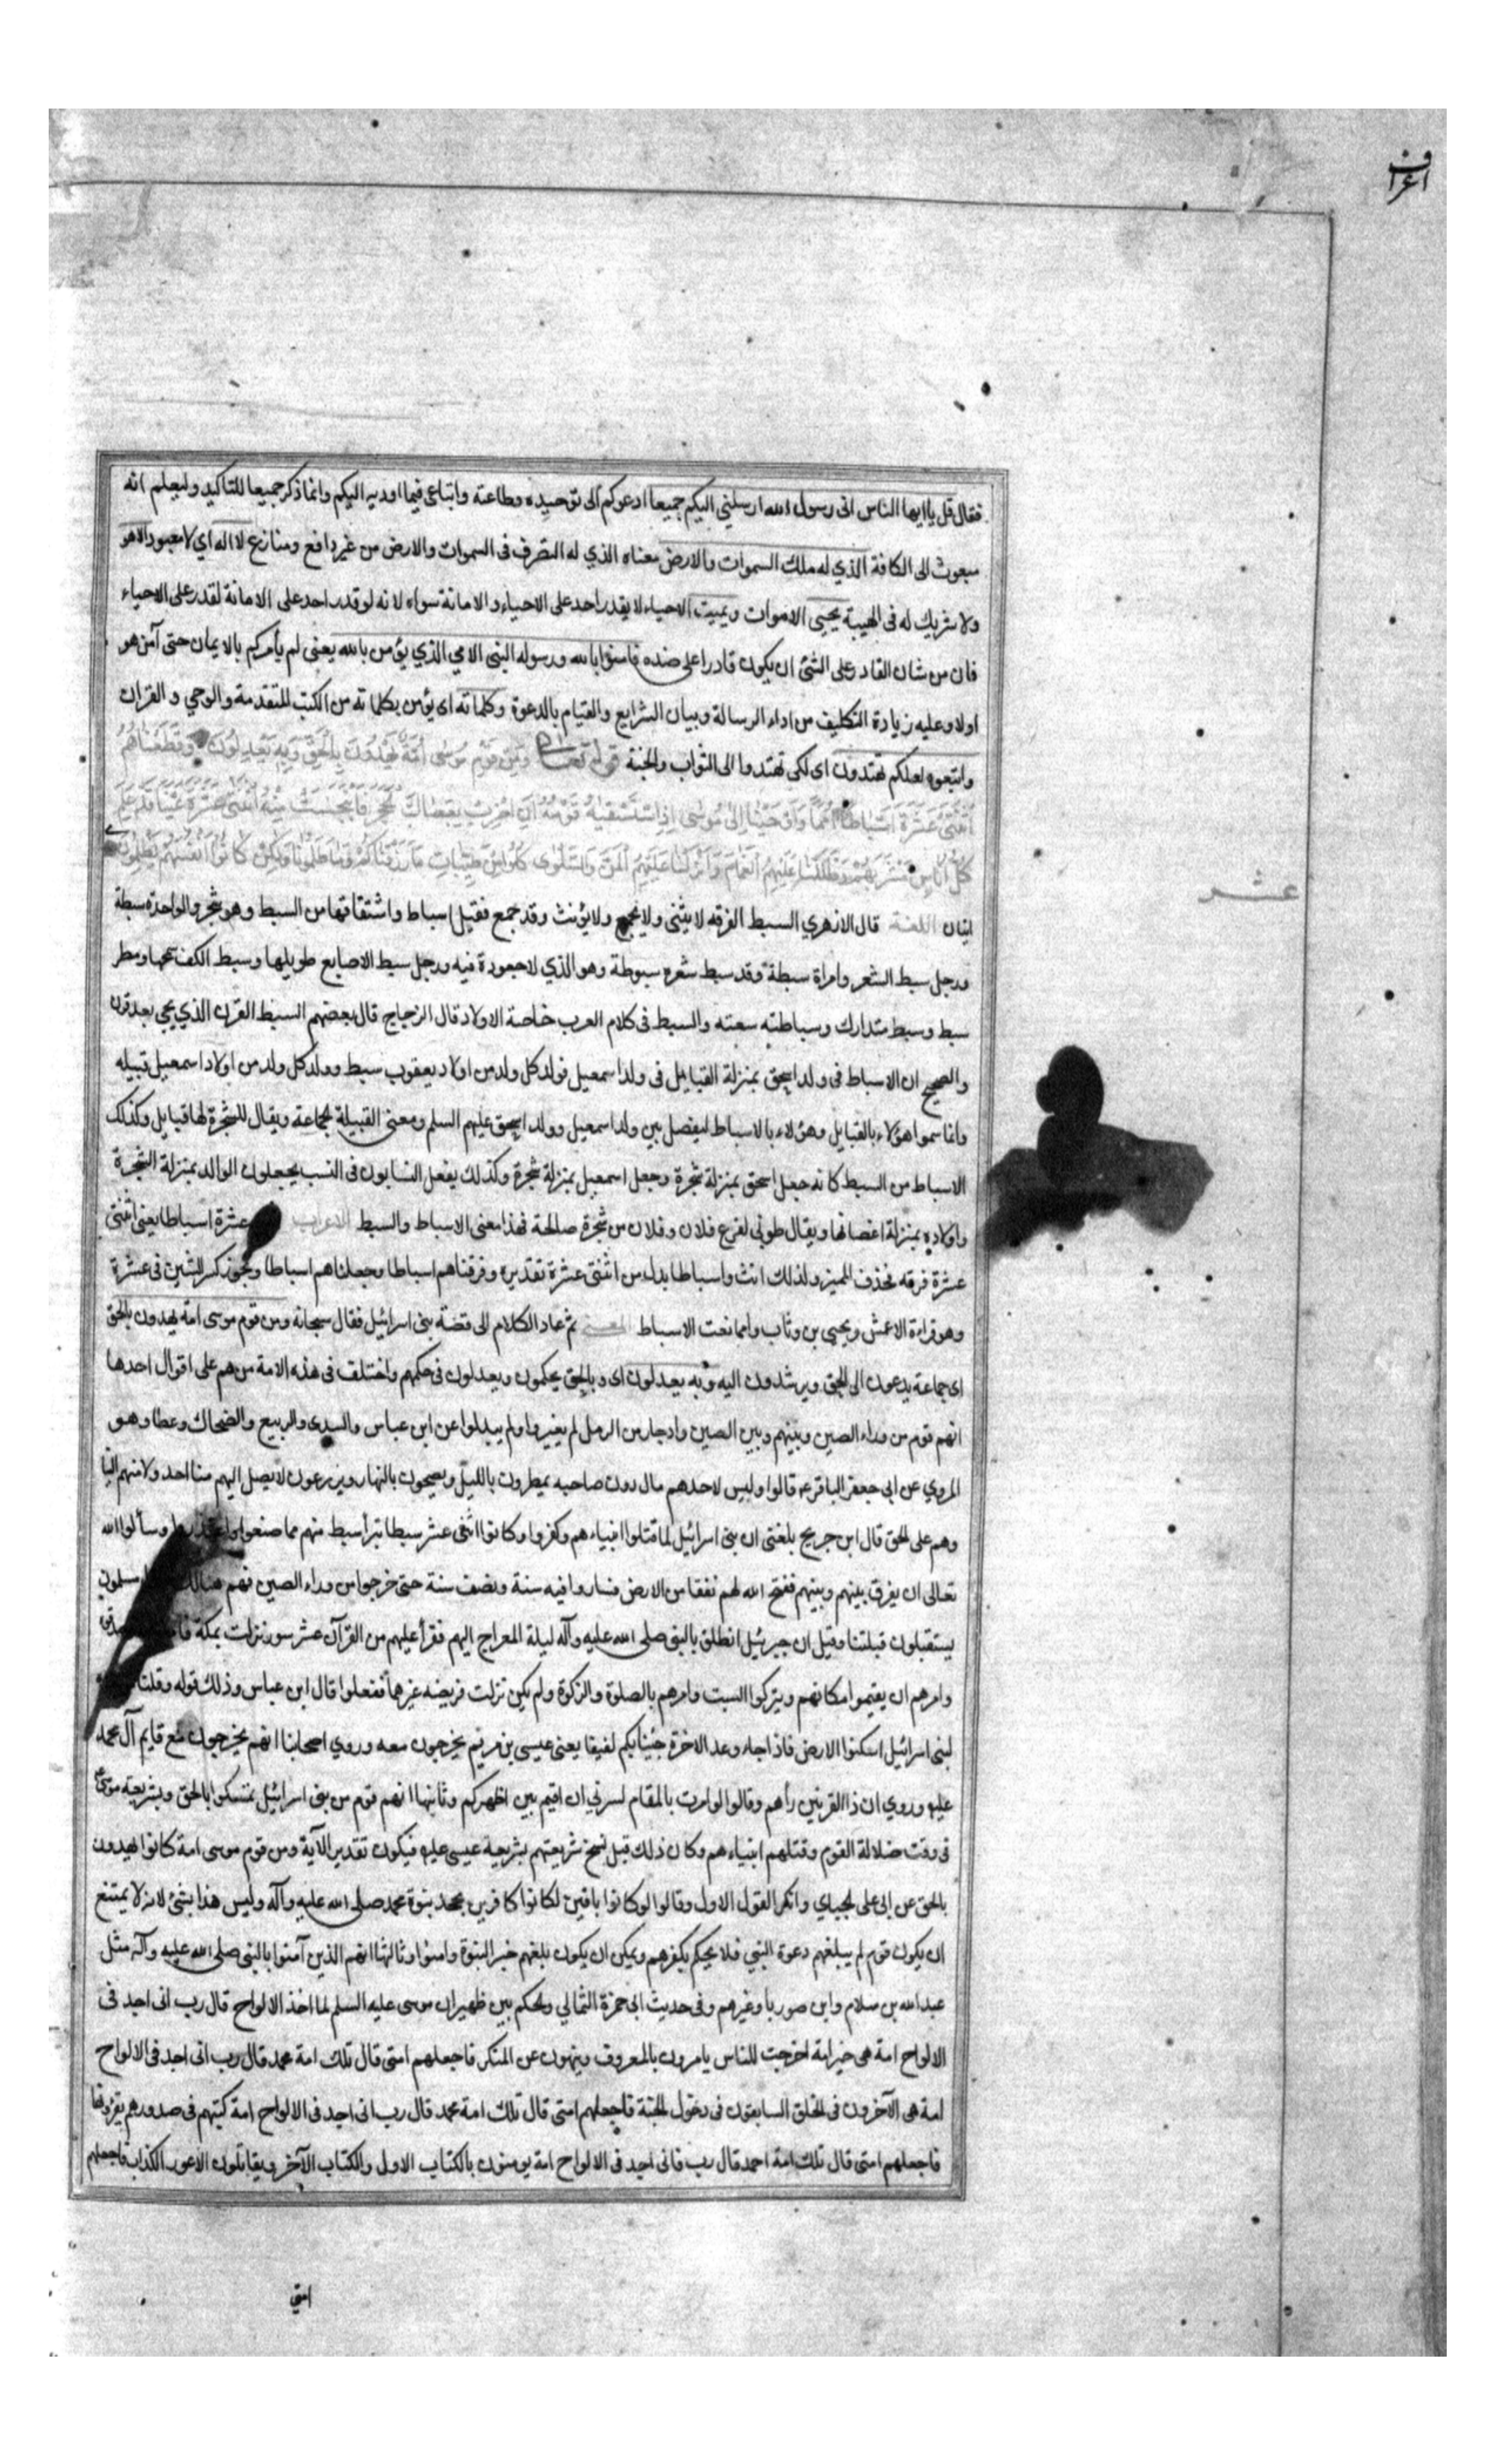 اعراف
فقال قل يا ايها الناس انى رسول الله ارسلني اليكم جميعا ادعوكم الى توحيده وطاعته واتباعى فيما اوديه اليكم وانما ذكر جميعا للتاكيد وليعلم انه
مبعوث الى الكافة الذي له ملك السموات والارض معناه الذي له التصرف فى السموات والارض من غير دافع ومنازع لا اله اى لا معبود الا هو
ولا شريك له فى الهيبة يحيى الاموات ويميت الاحياء لا يقدر احد على الاحياء والاماتة سواه لانه لو قدر احد على الاماتة لقدر على الاحياء
فان من شان القادر على الشئ ان يكون قادرا على ضده فامنوا بالله ورسوله النبى الامي الذي يؤمن بالله يعنى لم يأمركم بالايمان حتى آمن هو
اولا وعليه زيادة التكليف من اداء الرسالة وبيان الشرايع والقيام بالدعوة وكلماته اى يؤمن بكلماته من الكتب المتقدمة والوحي والقران
واتبعوه لعلكم تهتدون اى لكى تهتدوا الى الثواب والجنة قوله تعالى ومن قوم موسى امة يهدون بالحق وبه يعدلون وقطعناهم
اثنتى عشرة اسباطا امما واوحينا الى موسى اذ استسقيه قومه ان اضرب بعصاك الحجر فانبجست منه اثنتى عشرة عينا قد علم
كل اناس مشربهم وظللنا عليهم الغمام وانزلنا عليهم المن والسلوى كلوا من طيبات ما رزقناكم وما ظلمونا ولكن كانوا انفسهم يظلمون
عشر
ايتان اللغة قال الازهري السبط الفرقه لا يثنى ولا يجمع ولا يؤنث وقد جمع فقيل اسباط واشتقاقها من السبط وهو شجر والواحدة سبطة
ورجل سبط الشعر وامراة سبطة وقد سبط شعره سبوطة وهو الذي لا جعودة فيه ورجل سبط الاصابع طويلها وسبط الكف سمحها ومطر
سبط وسبط متدارك وسباطته سعته والسبط فى كلام العرب خاصة الاولاد قال الزجاج قال بعضهم السبط القرن الذي يجى بعد قرن
والصحيح ان الاسباط فى ولد اسحق بمنزلة القبايل فى ولد اسمعيل فولد كل ولد من اولاد يعقوب سبط وولد كل ولد من اولاد اسمعيل قبيله
وانما سموا هؤلاء بالقبايل وهؤلاء بالاسباط ليفصل بين ولد اسمعيل وولد اسحق عليهم السلم ومعنى القبيلة الجماعة ويقال للشجرة لها قبايل وكذلك
الاسباط من السبط كانه جعل اسحق بمنزلة شجرة وجعل اسمعيل بمنزلة شجرة وكذلك يفعل النسابون فى النسب يجعلون الوالد بمنزلة الشجرة
واولاده بمنزلة اغصانها ويقال طوبى لفرع فلان وفلان من شجرة صالحة فهذا معنى الاسباط والسبط الاعراب عشرة اسباطا يعنى اثنتى
عشرة فرقه فحذف المميز ولذلك انث واسباطا بدل من اثنتى عشرة تقديره وفرقناهم اسباطا وجعلناهم اسباطا ويجوز كسر الشين فى عشرة
وهو قراءة الاعمش ويحيى بن وثاب وامما نعت الاسباط المعنى ثم عاد الكلام الى قصة بنى اسرائيل فقال سبحانه ومن قوم موسى امة يهدون بالحق
اى جماعة يدعون الى الحق ويرشدون اليه وبه يعدلون اى وبالحق يحكمون ويعدلون فى حكمهم واختلف فى هذه الامة من هم على اقوال احدها
انهم قوم من وراء الصين وبينهم وبين الصين واد جار من الرمل لم يغيروا ولم يبدلوا عن ابن عباس والسدى والربيع والضحاك وعطا وهو
المروي عن ابى جعفر الباقر ع قالوا وليس لاحدهم مال دون صاحبه يمطرون بالليل ويصحون بالنهار ويزرعون لا يصل اليهم منا احد ولا منهم الينا
وهم على الحق قال ابن جريج بلغنى ان بنى اسرائيل لما قتلوا انبياءهم وكفروا وكانوا اثنى عشر سبطا تبرأ سبط منهم مما صنعوا واعتذروا وسألوا الله
تعالى ان يفرق بينهم وبينهم ففتح الله لهم نفقا من الارض فساروا فيه سنة ونصف سنة حتى خرجوا من وراء الصين فهم هنالك مسلمون
يستقبلون قبلتنا وقيل ان جبرئيل انطلق بالنبى صلى الله عليه وآله ليلة المعراج اليهم فقرأ عليهم من القرآن عشر سور نزلت بمكة
وامرهم ان يقيموا مكانهم ويتركوا السبت وامرهم بالصلوة والزكوة ولم يكن نزلت فريضه غيرها ففعلوا قال ابن عباس وذلك قوله وقلنا
لبنى اسرائيل اسكنوا الارض فاذا جاء وعد الاخرة جئنا بكم لفيفا يعنى عيسى بن مريم يخرجون معه وروي اصحابنا انهم يخرجون مع قايم آل محمد
عليه وروي ان ذا القرنين رأهم وقالوا لو امرت بالمقام لسرنى ان اقيم بين اظهركم وثانيها انهم قوم من بنى اسرائيل تمسكوا بالحق وبشريعة موسى
فى وقت ضلالة القوم وقتلهم انبياءهم وكان ذلك قبل نسخ شريعتهم بشريعة عيسى عليه فيكون تقدير الآية ومن قوم موسى امة كانوا يهدون
بالحق عن ابى على الجبائي وانكر القول الاول وقالوا لو كانوا باقين لكانوا كافرين بجحد بنوة محمد صلى الله عليه وآله وليس هذا بشئ لانه لا يمتنع
ان يكون قوم لم يبلغهم دعوة النبى فلا يحكم بكفرهم ويمكن ان يكون بلغهم خبر النبوة وامنوا وثالثها انهم الذين آمنوا بالنبى صلى الله عليه وآله مثل
عبد الله بن سلام وابن صوريا وغيرهم وفى حديث ابى حمزة الثمالي والحكم بين ظهير ان موسى عليه السلم لما اخذ الالواح قال رب انى اجد فى
الالواح امة هى خير امة اخرجت للناس يامرون بالمعروف وينهون عن المنكر فاجعلهم امتى قال تلك امة محمد قال رب انى اجد فى الالواح
امة هى الآخرون فى الخلق السابقون فى دخول الجنة فاجعلهم امتى قال تلك امة محمد قال رب انى اجد فى الالواح امة كتبهم فى صدورهم يقرونها
فاجعلهم امتى قال تلك امة احمد قال رب فانى اجد فى الالواح امة يومنون بالكتاب الاول والكتاب الآخر ويقاتلون الاعور الكذاب فاجعلهم
امتي